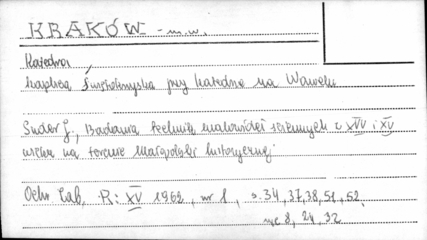 KRAKÓW - m.w.
Katedra,
kaplica Świętokrzyska przy katedrze na Wawelu
Suder J, Badania techniki malowideł ściennych z XIV i XV
wieku na terenie Małopolski historycznej
Ochr. Zab. R: XV 1962, nr 1, s. 34, 37, 38, 51, 52,
ryc 8, 24, 32